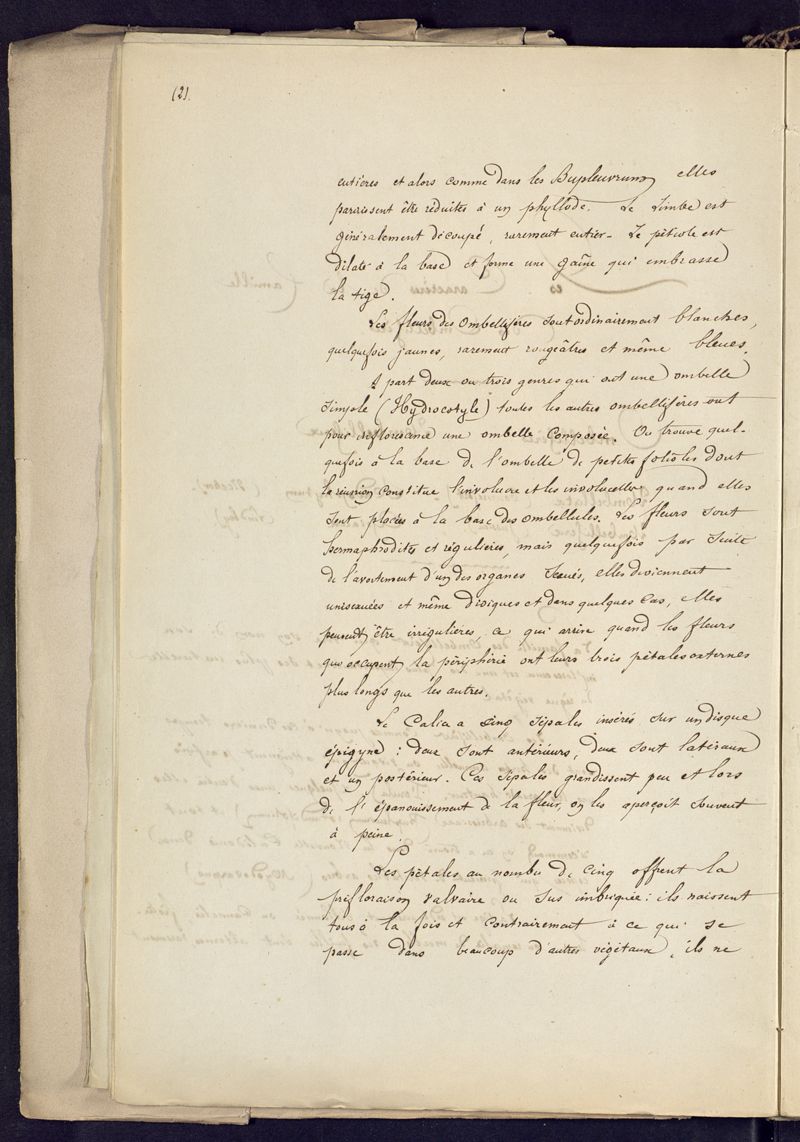 (2).
entières et alors comme dans les Bupleuvrum, elles
paraissent être réduites à un phyllode. Le limbe est
généralement découpé, rarement entier. Le pétiole est
dilaté à la base et forme une gaîne qui embrasse
la tige.
Les fleurs des ombellifères sont ordinairement blanches,
quelquefois jaunes, rarement rougeâtres et même bleues.
A part deux ou trois genres qui ont une ombelle
simple (Hydrocotyle) toutes les autres ombellifères ont
pour inflorescence une ombelle composée. On trouve quel-
quefois à la base de l'ombelle de petites folioles dont
la réunion constitue l'involucre et les involucelles quand elles
sont placées à la base des ombellules. Les fleurs sont
hermaphrodites et régulières, mais quelquefois par suite
de l'avortement d'un des organes sexués, elles deviennent
unisexuées et même dioïques et dans quelques cas, elles
peuvent être irrégulières, ce qui arrive quand les fleurs
qui occupent la périphérie ont leurs trois pétales externes
plus longs que les autres.
Le Calice a cinq sépales insérés sur un disque
épigyne : deux sont antérieurs, deux sont latéraux
et un postérieur. Ces sépales grandissent peu et lors
de l'épanouissement de la fleur, on les aperçoit souvent
à peine.
Les pétales au nombre de cinq offrent la
préfloraison valvaire ou sus imbriquée : ils naissent
tous à la fois et contrairement à ce qui se
passe dans beaucoup d'autres végétaux, ils ne